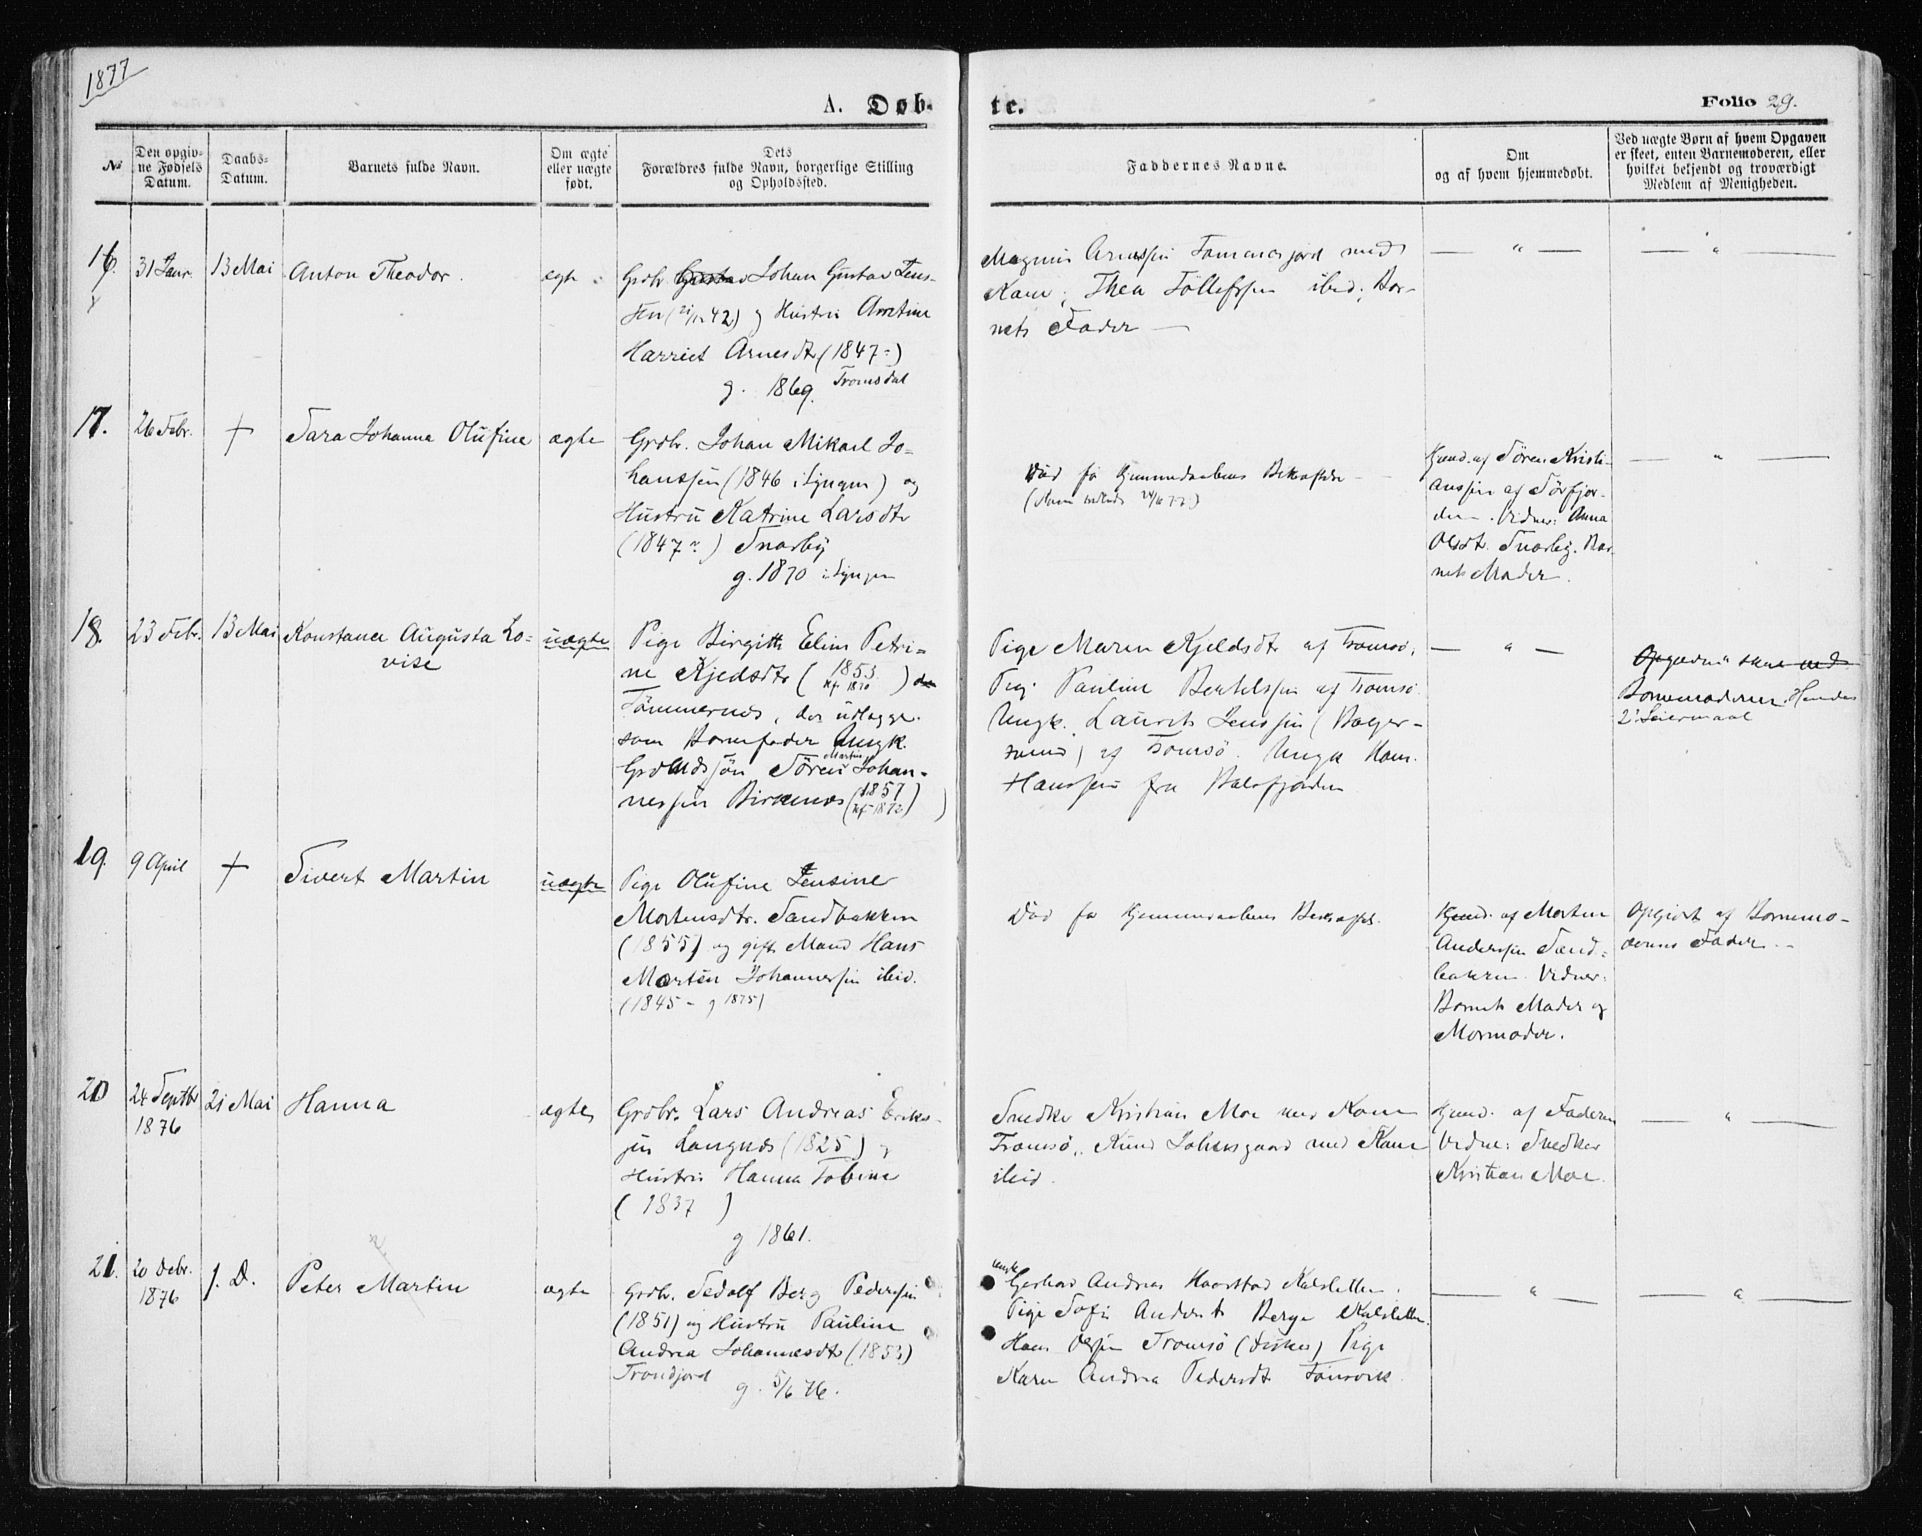 1877
A. Døb-
te.
Folio 29.
№
Den opgiv-
ne Fødsels
Datum.
Daabs-
Datum.
Barnets fulde Navn.
Om ægte
eller uægte
født.
Dets
Forældres fulde Navn, borgerlige Stilling
og Opholdssted.
Faddernes Navne.
Om
og af hvem hjemmedøbt.
Ved uægte Børn af hvem Opgaven
er skeet, enten Barnemoderen, eller
hvilket bekjendt og troværdigt
Medlem af Menigheden.
16.
31 Janr.
13 Mai
Anton Theodor.
ægte
Grdbr. Gustav Johan Gustav Jens-
sen 42) og Hustru
Harriet Arnesdtr (1847 )
g. 1869. Tromsdal
Magnus Arnessen med
Kone; Thea ibid; Bar-
nets Fader —
— " —
— " —
17.
26 Febr.
+
Sara Johanna Olufine
ægte
Grdbr. Johan Mikael Jo-
hanssen (1846 i Lyngen) og
Hustru Katrine Larsdtr
(1847 ) Snarby
g. 1870 i Lyngen
Død før Hjemmedaabens Bekræftelse —
Hjmd. af Søren Kristi-
anssen af Sørfjor-
den. Vidner: Anna
Olsdtr. Snarby. Bar-
nets Moder.
— " —
18.
23 Febr.
13 Mai
Konstance Augusta Lo-
vise
uægte
Pige Birgitte Elen Petri-
ne Kjeldsdtr (1853 )
kf. 1870
Tømmernes, der udlægger
som Barnefader Ungk.
Grdmdssøn Søren Martin Johan-
nessen Birkenes (1857 )
kf. 1872
Pige Maren Kjeldsdtr af Tromsø,
Pige Pauline Bertelssen af Tromsø.
Ungk. Laurits Jenssen (Bager-
svend) af Tromsø. Ungk. Hans
Hanssen fra Balsfjorden
— " —
Opgaven skeet ved
Barnemoderen. Hendes
2' Leiermaal
19.
9 April
+
Sivert Martin
uægte
Pige Olufine Jensine
Mortensdtr. Sandbakken
(1855) og gift Mand Hans
Morten Johannessen ibid.
(1845 – g 1875)
Død før Hjemmedaabens Bekræftel.
Hjmd. af Morten
Anderssen Sand-
bakken. Vidner:
Barnets Moder og
Mormoder.
Opgivet af Barnemo-
derens Fader. —
20
24 Septbr
1876
21 Mai
Hanna
ægte
Grdbr. Lars Andreas Eriks-
sen Langnes (1825) og
Hustru Hanna Tobine
(1837 )
g 1861.
Snedker Kristian Moe med Kone
Tromsø, Knud Johnsgaard med Kone
ibid.
Hjmd. af Faderen
Vidne: Snedker
Kristian Moe.
— " —
21.
20 Debr.
1876
s. D.
Peter Martin
ægte
Grdbr. Sedolf Berg Pederssen
(1851) og Hustru Pauline
Andrea Johannesdtr (1853)
Trondjord
g. 5/6 76.
Ungk.
Gerhard Andreas Haarstad Kalsletten.
Pige Sofie Anders Berge Kalsletten.
Hans Olssen Tromsø (Disker) Pige
Karen Andrea Pedersdtr Tønsvik.
— " —
— " —